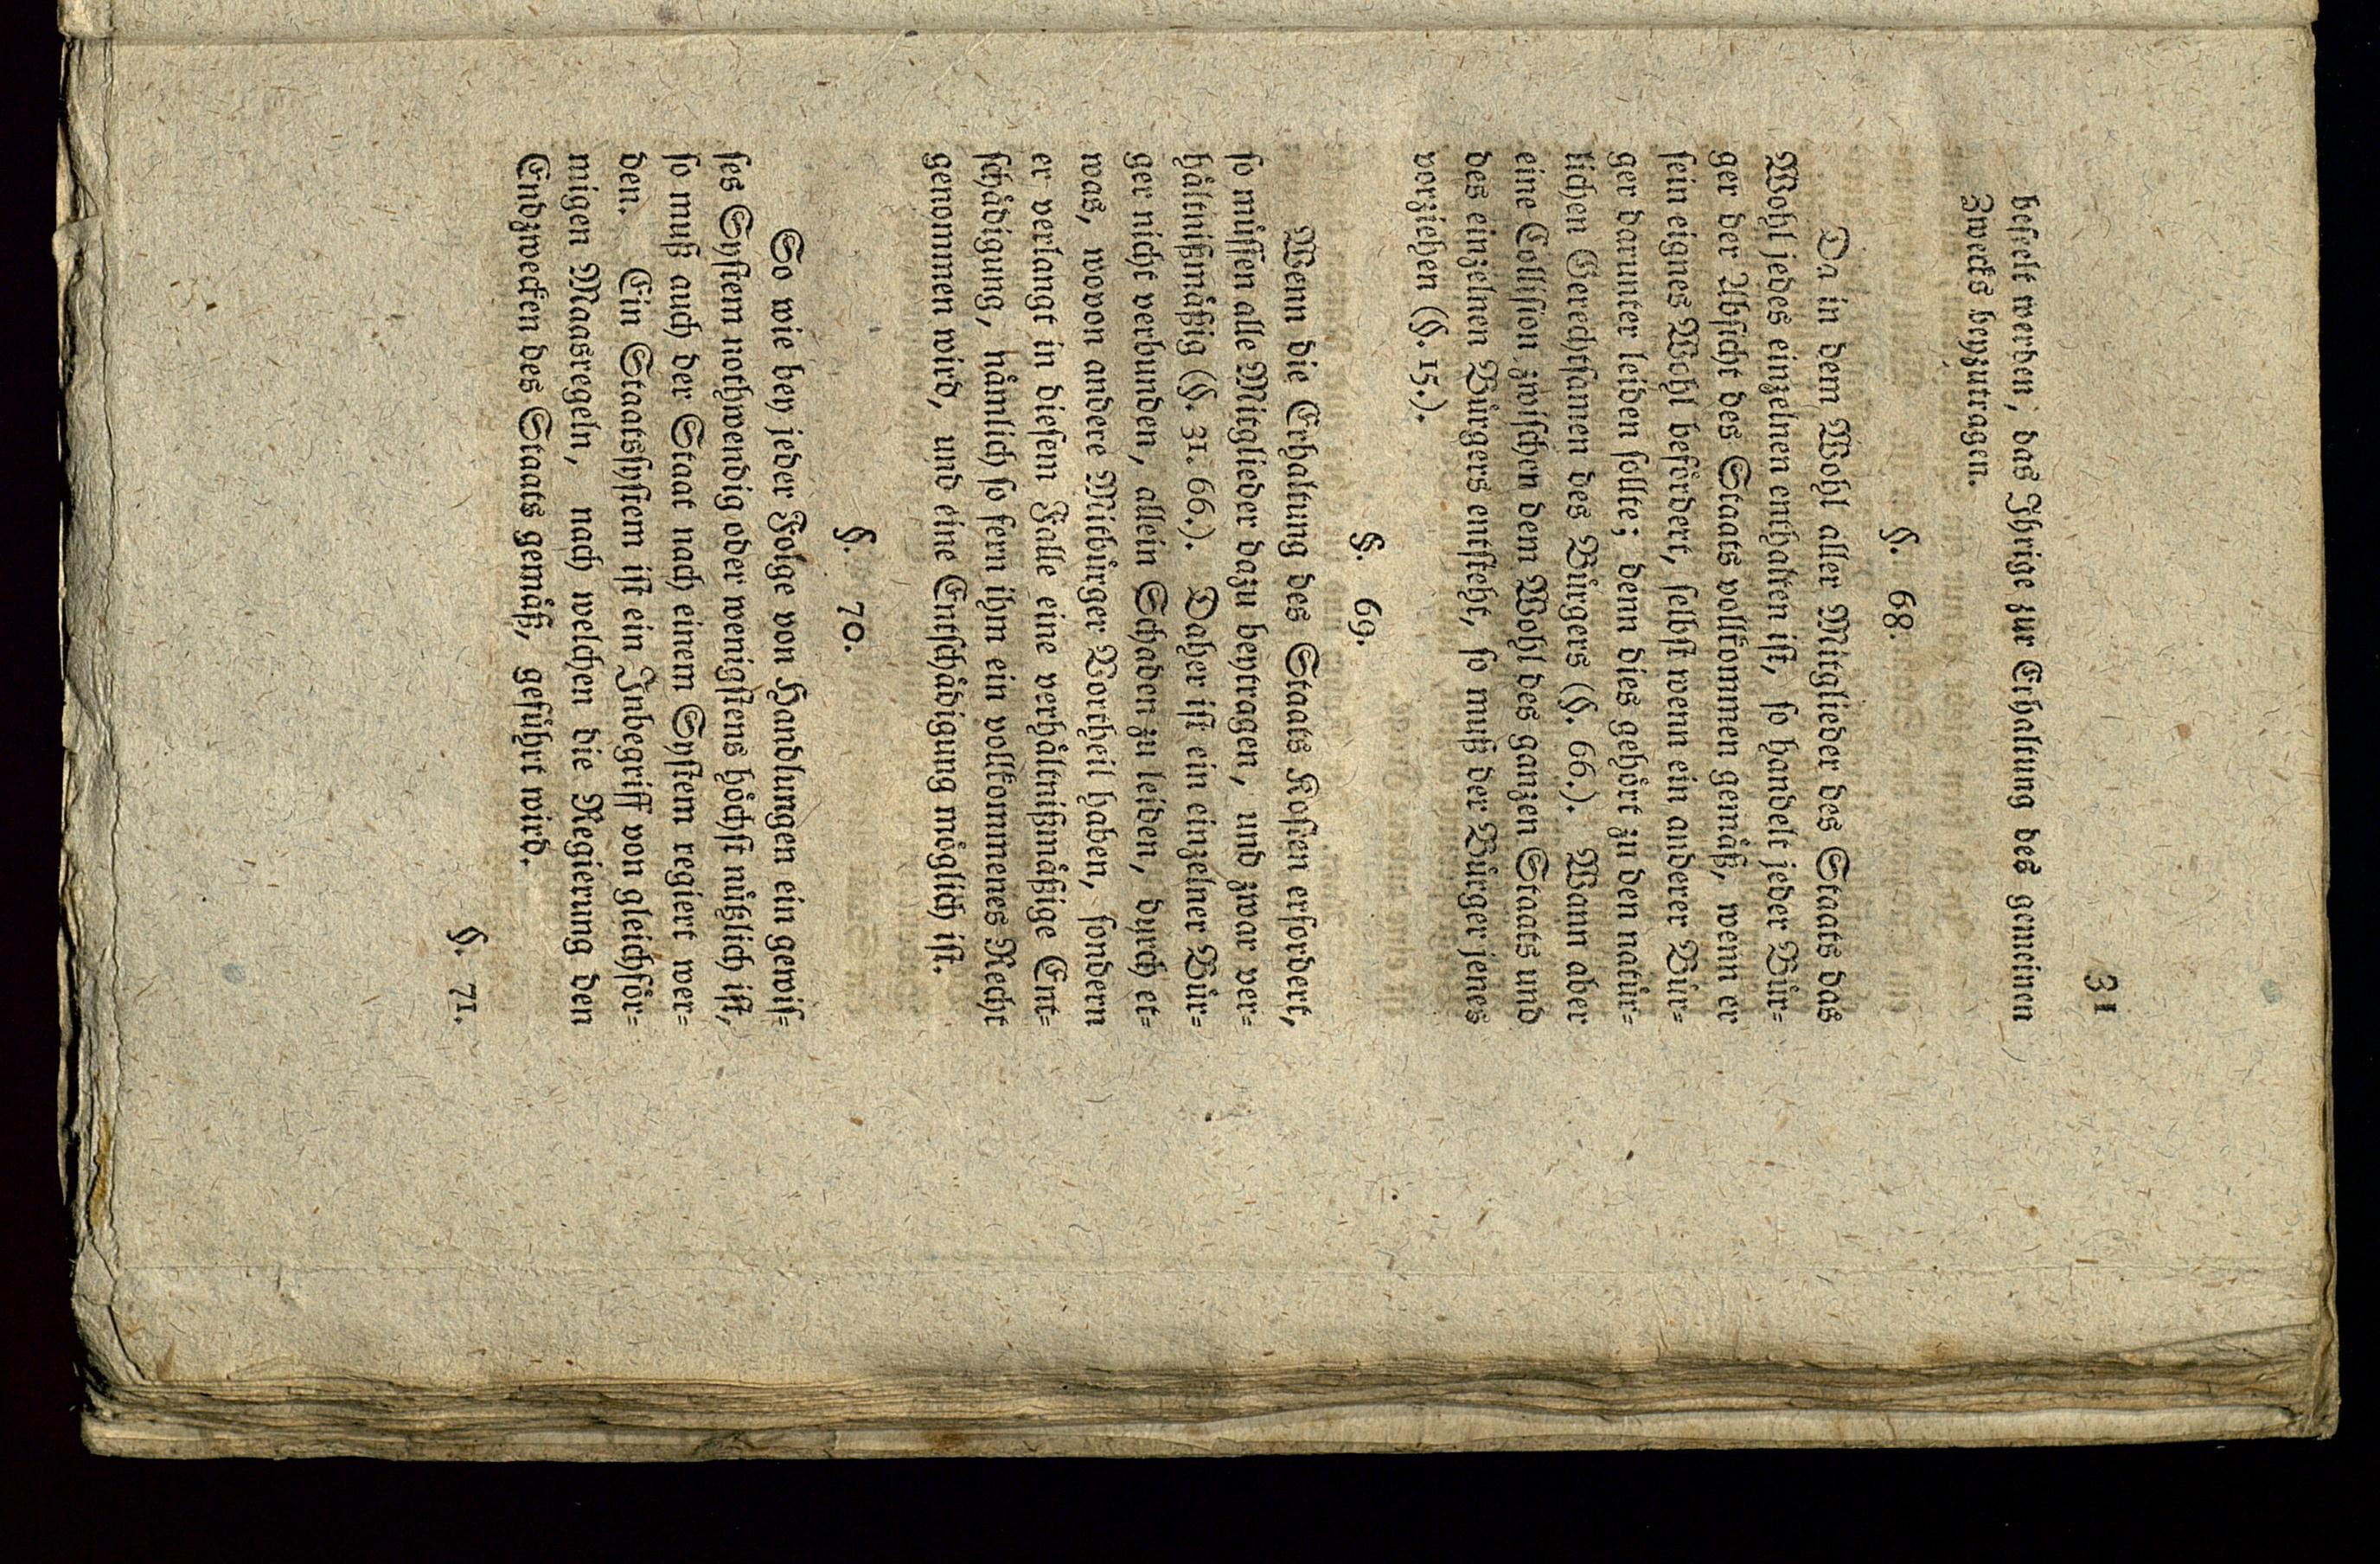 31
befelt werden, das Ihrige zur Erhaltung des gemeinen
Zwecks beyzutragen.
§. 68.
Da in dem Wohl aller Mitglieder des Staats das
Wohl jedes einzelnen enthalten ist, so handelt jeder Bür-
ger der Absicht des Staats vollkommen gemäß, wenn er
sein eignes Wohl befördert, selbst wenn ein anderer Bür-
ger darunter leiden sollte; denn dies gehört zu den natür-
lichen Gerechtsamen des Bürgers (§. 66.). Wann aber
eine Collision zwischen dem Wohl des ganzen Staats und
des einzelnen Bürgers entsteht, so muß der Bürger jenes
vorziehen (§. 15.).
§. 69.
Wenn die Erhaltung des Staats Kosten erfordert,
so müssen alle Mitglieder dazu beytragen, und zwar ver-
hältnißmäßig (§. 31. 66.). Daher ist ein einzelner Bür-
ger nicht verbunden, allein Schaden zu leiden, durch et-
was, wovon andere Mitbürger Vortheil haben, sondern
er verlangt in diesem Falle eine verhältnißmäßige Ent-
schädigung, nämlich so fern ihm ein vollkommenes Recht
genommen wird, und eine Entschädigung möglich ist.
§. 70.
So wie bey jeder Folge von Handlungen ein gewis-
ses System nothwendig oder wenigstens höchst nützlich ist,
so muß auch der Staat nach einem System regiert wer-
den. Ein Staatssystem ist ein Inbegriff von gleichför-
migen Maasregeln, nach welchen die Regierung den
Endzwecken des Staats gemäß, geführt wird.
§. 71.